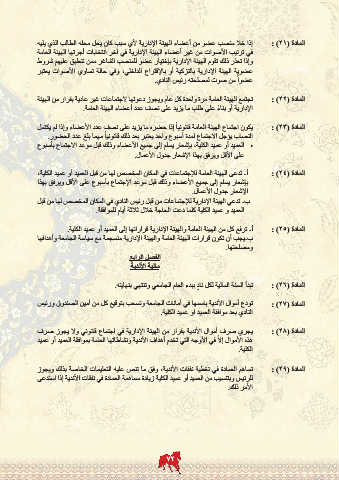 المادة (٢١) : إذا خلا منصب عضو من أعضاء الهيئة الإدارية لأي سبب كان يحل محله الطالب الذي يليه
في ترتيب الأصوات من غير أعضاء الهيئة الإدارية في آخر انتخابات أجرتها الهيئة العامة
وإذا تعذر ذلك تقوم الهيئة الإدارية بإختيار عضو للمنصب الشاغر ممن تنطبق عليهم شروط
عضوية الهيئة الإدارية بالتزكية أو بالاقتراع الداخلي، وفي حالة تساوي الأصوات يعتبر
عضواً من صوت لمصلحته رئيس النادي.
المادة (٢٢) : تجتمع الهيئة العامة مرة واحدة كل عام ويجوز دعوتها لاجتماعات غير عادية بقرار من الهيئة
الإدارية أو بناءً على طلب ما يزيد على نصف عدد أعضاء الهيئة العامة.
المادة (٢٣) : يكون اجتماع الهيئة العامة قانونياً إذا حضره ما يزيد على نصف عدد الأعضاء وإذا لم يكتمل
النصاب يؤجل الاجتماع لمدة أسبوع واحد يعتبر بعد ذلك قانونياً مهما بلغ عدد الحضور.
• العميد أو عميد الكلية، بإشعار يرسل إلى جميع الأعضاء وذلك قبل موعد الاجتماع بأسبوع
على الأقل ويرفق بهذا الإشعار جدول الأعمال.
المادة (٢٤) : أ. تدعى الهيئة العامة للاجتماعات في المكان المخصص لها من قبل العميد أو عميد الكلية،
بإشعار يرسل إلى جميع الأعضاء وذلك قبل موعد الإجتماع بأسبوع على الأقل ويرفق بهذا
الإشعار جدول الأعمال.
ب. تدعى الهيئة الإدارية للإجتماعات من قبل رئيس النادي في المكان المخصص لها من قبل
العميد و عميد الكلية كلما دعت الحاجة خلال ثلاثة أيام للموافقة.
المادة (٢٥) : أ. ترفع كل من الهيئة العامة والهيئة الإدارية قراراتها إلى العميد أو عميد الكلية.
ب.يجب أن تكون قرارات الهيئة العامة والهيئة الإدارية منسجمة مع سياسة الجامعة وأهدافها
ومصلحتها.
الفصل الرابع
مالية الأندية
المادة (٢٦) : تبدأ السنة المالية لكل ناد ببدء العام الجامعي وتنتهي بنهايته.
المادة (٢٧) : تودع أموال الأندية باسمها في أمانات الجامعة وتسحب بتوقيع كل من أمين الصندوق ورئيس
النادي بعد موافقة العميد او عميد الكلية.
المادة (٢٨) : يجري صرف أموال الأندية بقرار من الهيئة الإدارية في اجتماع قانوني ولا يجوز صرف
هذه الأموال إلا في الأوجه التي تخدم أهداف الأندية ونشاطاتها العامة بموافقة العميد أو عميد
الكلية.
المادة (٢٩) : تساهم العمادة في تغطية نفقات الأندية، وفق ما تنص عليه التعليمات الخاصة بذلك ويجوز
للرئيس وبتنسيب من العميد أو عميد الكلية زيادة مساهمة العمادة في نفقات الأندية إذا استدعى
الأمر ذلك.